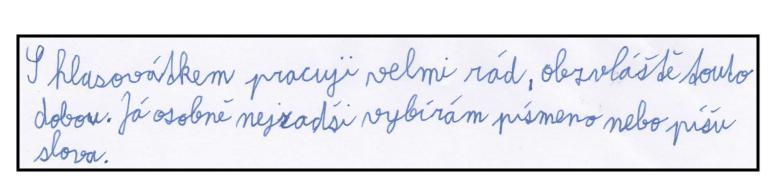 S hlasovátkem pracuji velmi rád, obzvláště touto
dobou. Já osobně nejradši vybírám písmeno nebo píšu
slova.